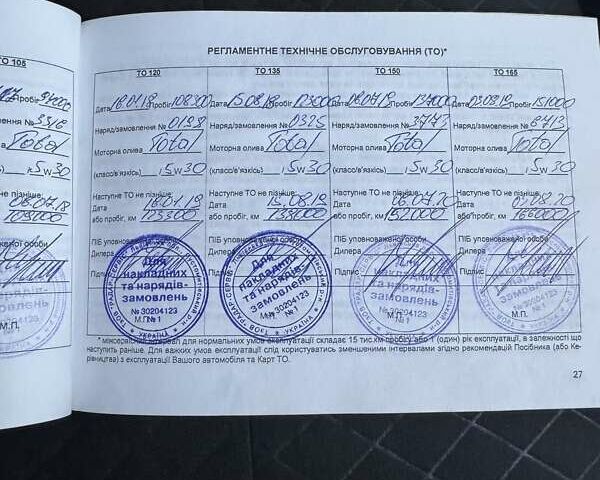 РЕГЛАМЕНТНЕ ТЕХНІЧНЕ ОБСЛУГОВУВАННЯ (ТО)*
ТО 105
Пробіг
Total
5w30
не пізніше:
06.07.19
109000
ТО 120
Дата 18.01.18 Пробіг 108300
Наряд/замовлення № 0198
Моторна олива Total
(класс/в'язкість) 5w30
Наступне ТО не пізніше:
Дата 18.01.19
або пробіг, км 123300
ПІБ уповноваженої особи
Дилера
Підпис
Для накладних та нарядів-замовлень
№ 30204123
УКРАЇНА
М.П.
ТО 135
Дата 15.08.18 Пробіг 123000
Наряд/замовлення № 0325
Моторна олива Total
(класс/в'язкість) 5w30
Наступне ТО не пізніше:
Дата 15.08.19
або пробіг, км 138000
ПІБ уповноваженої особи
Дилера
Підпис
Для накладних та нарядів-замовлень
№ 30204123
УКРАЇНА
ТО 150
Дата 06.07.19 Пробіг 137000
Наряд/замовлення № 3743
Моторна олива Total
(класс/в'язкість) 5w30
Наступне ТО не пізніше:
Дата 06.07.20
або пробіг, км 152000
ПІБ уповноваженої особи
Дилера
Підпис
накладних та нарядів-замовлень
№ 30204123
УКРАЇНА
ТО 165
Дата 03.08.19 Пробіг 151000
Наряд/замовлення № 8713
Моторна олива Total
(класс/в'язкість) 5w30
Наступне ТО не пізніше:
Дата 03.08.20
або пробіг, км 166000
ПІБ уповноваженої особи
Дилера
Підпис
накладних та нарядів-замовлень
№ 30204123
М.П.
*міжсервісний інтервал для нормальних умов експлуатації складає 15 тис.км пробігу або 1 (один) рік експлуатації, в залежності що
наступить раніше. Для важких умов експлуатації слід користуватись зменшеними інтервалами згідно рекомендацій Посібника (або Ке-
рівництва) з експлуатації Вашого автомобіля та Карт ТО.
27